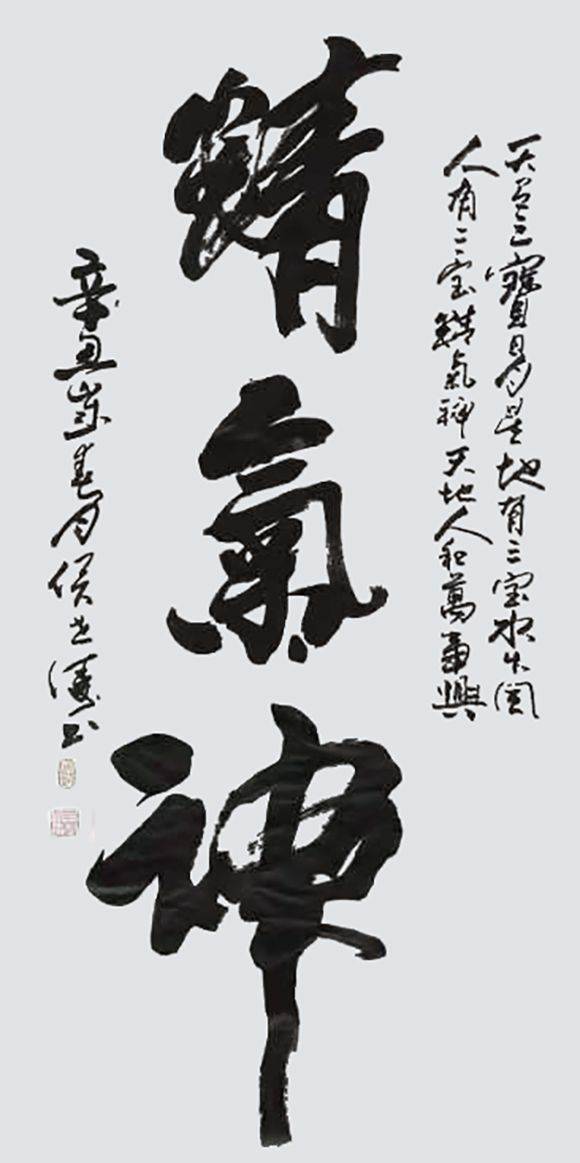 天有三寶日月星地有三宝水火風
人有三宝精氣神天地人和萬事興
精氣神
辛丑歲春月侯志书